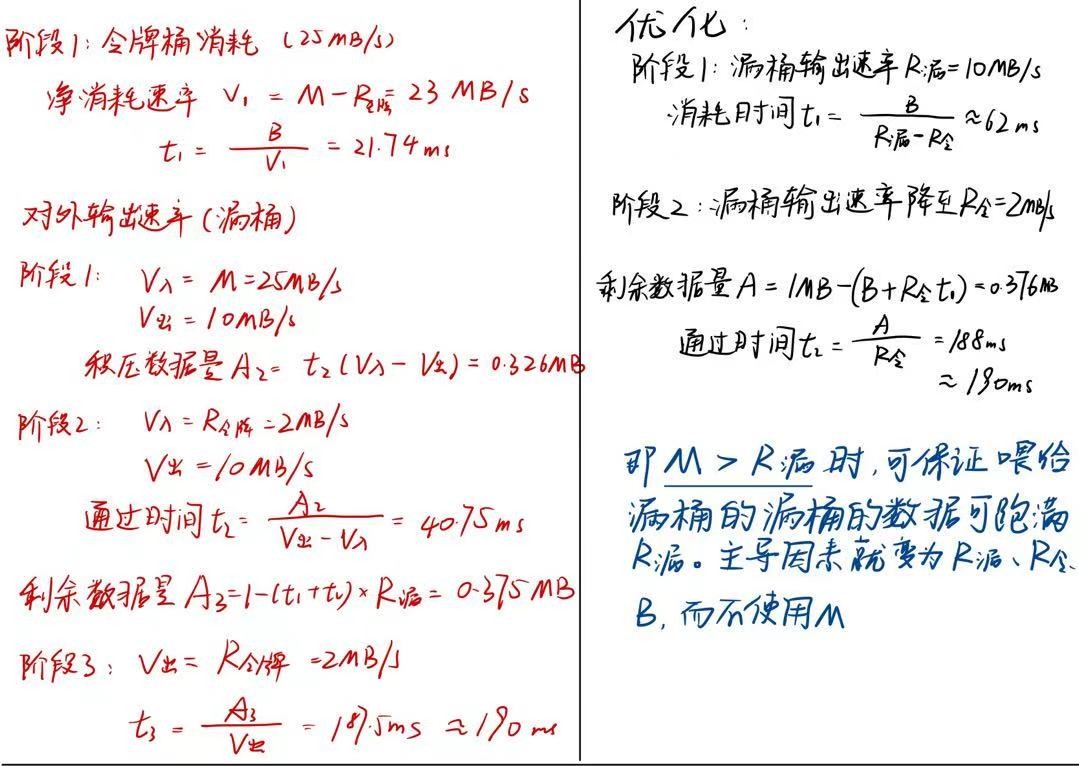 阶段1: 令牌桶消耗 (25MB/s)
净消耗速率 V₁ = M - R令牌 = 23 MB/s
t₁ = B/V₁ = 21.74ms
对外输出速率(漏桶)
阶段1: V入 = M = 25MB/s
V出 = 10MB/s
积压数据量 A₂ = t₂(V入 - V出) = 0.326MB
阶段2: V入 = R令牌 = 2MB/s
V出 = 10MB/s
通过时间 t₂ = A₂/(V出 - V入) = 40.75ms
剩余数据量 A₃=1-(t₁+t₂)×R漏 = 0.375MB
阶段3: V出 = R令牌 = 2MB/s
t₃ = A₃/V出 = 187.5ms ≈190ms
优化:
阶段1: 漏桶输出速率R漏=10MB/s
消耗时间t₁ = B/(R漏-R令) ≈62ms
阶段2: 漏桶输出速率降至R令=2MB/s
剩余数据量A = 1MB-(B+R令t₁)=0.376MB
通过时间t₂ = A/R令 = 188ms
≈190ms
即 M > R漏 时,可保证喂给
漏桶的漏桶的数据可跑满
R漏。主导因素就变为R漏、R令、
B, 而不使用M